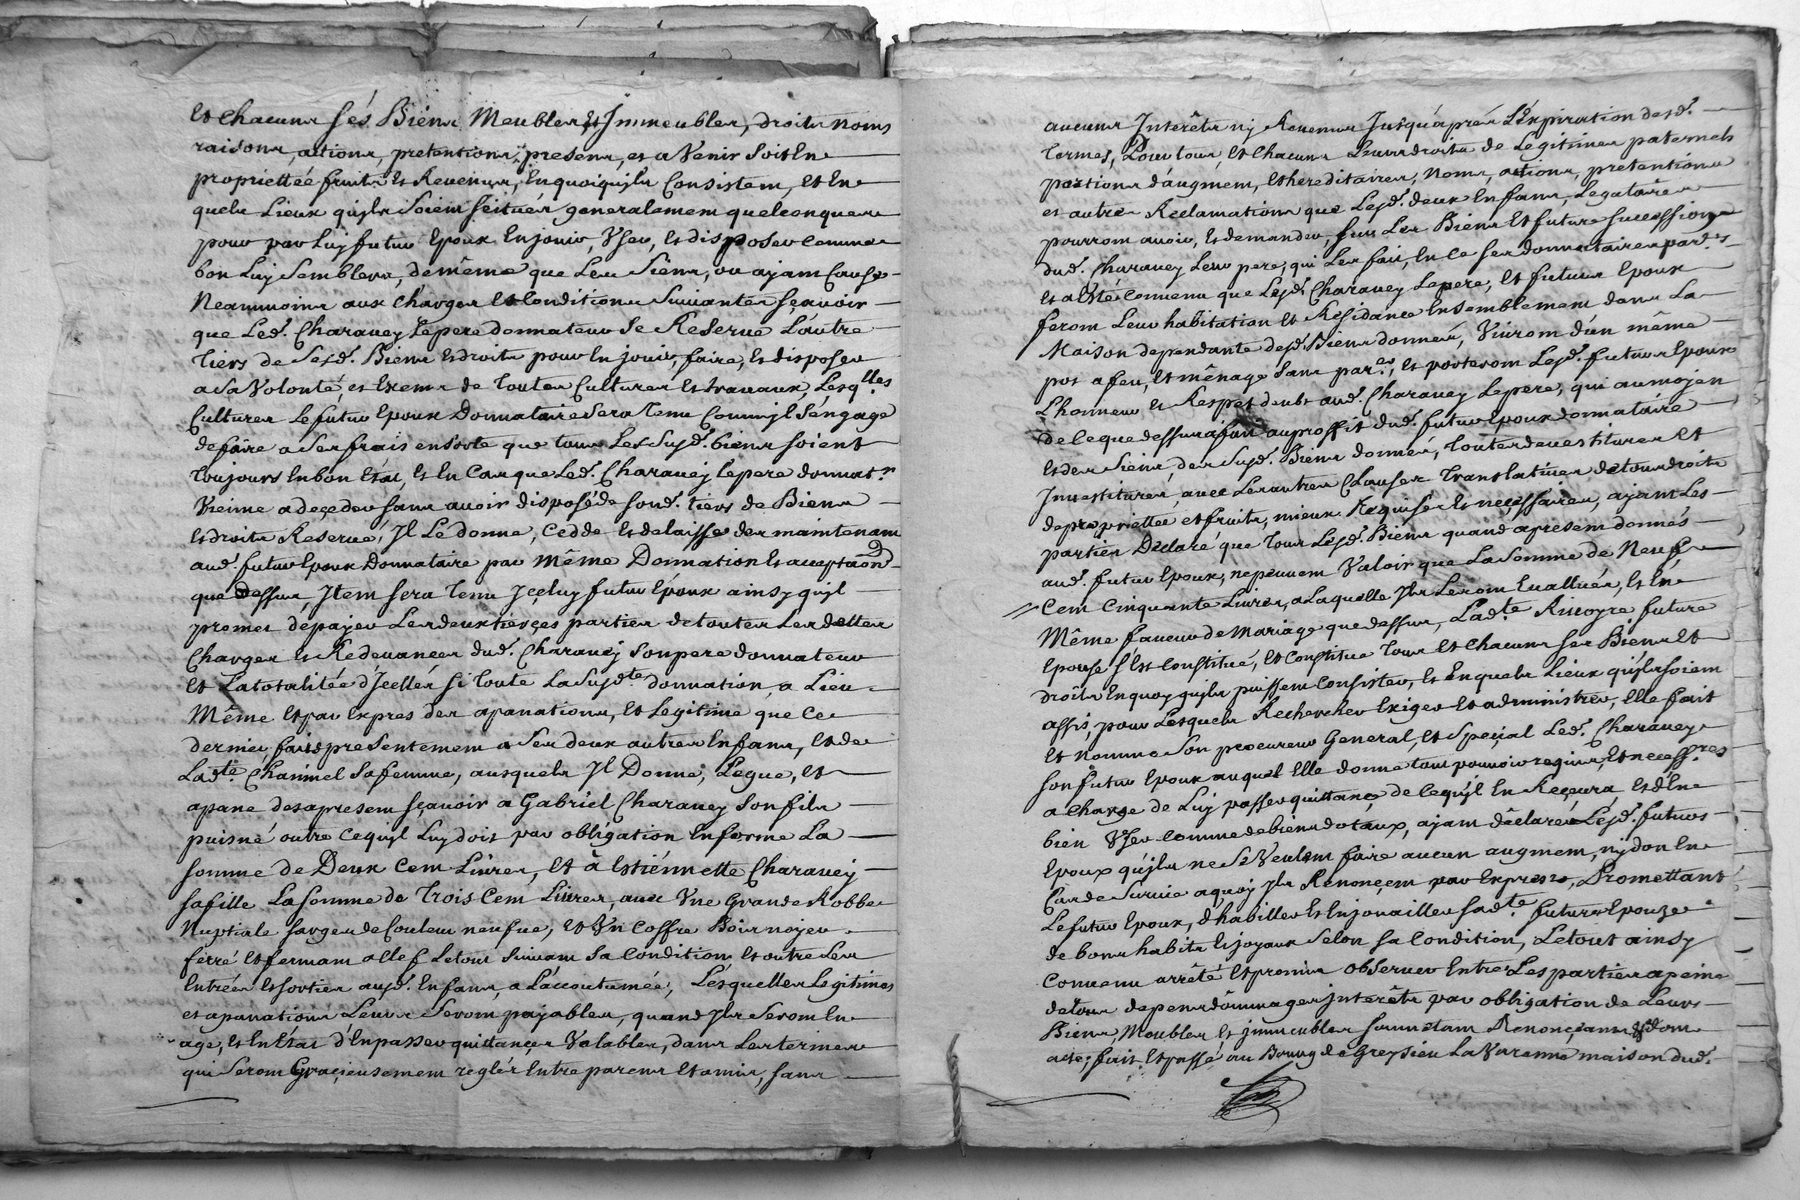 et chacuns ses Biens Meubles et Immeubles, droits noms
raisons, actions, pretentions, presens, et a Venir soit En
propriettée fruits et Revenus, En quoiquils Consistent, et En
quels Lieux quils soient scitués generalement quelconques
pour par Luy futur Epoux En jouir, Vser, et disposer comme
bon Luy Semblera, de même que Les Siens, ou ayant Cause
Neanmoins aux charges et Conditions Suivantes sçavoir
que Led. Charavey Le pere donnateur se Reserve L'autre
tiers de Sesd. Biens et droits pour En jouir, faire, et disposer
a Sa Volonté, et Exems de toutes Cultures et travaux, Lesqlles
Cultures Le futur Epoux Donnataire Sera tenu Comm'jl s'engage
de faire a Ses frais en sorte que tous Les Susd. biens soient
toujours En bon Etat, et En Cas que Led. Charavey Le pere donnatr
Vienne a deçeder sans avoir disposé de son d. tiers de Biens
et droits Reservé, Il Le donne, Cedde et delaisse des maintenant
aud. futur Epoux Donnataire par même Donnation et acceptaõn
que dessus, Item sera tenu Içeluy futur Epoux ainsy quil
promet de payer Les deux tierçes parties de toutes Les dettes
Charges et Redevances dud. Charavey Son pere donnateur
et La totalitée d'Icelles si toute La Susd.te donnation a Lieu
Même et par Expres des apanations, et Legitime que Ce
dernier fait presentement a Ses deux autres Enfans, et de
Lad.te Chammel Sa femme, ausquels Il Donne, Legue, et
apane des apresent sçavoir a Gabriel Charavey Son fils
puisné outre Cequ'yl Luy doit par obligation En forme La
somme de Deux Cent Livres, et à Estiennette Charavey
sa fille La Somme de Trois Cent Livres, avec Vne Grande Robbe
Nuptiale sarge de Couleur neufve, et Vn Coffre Bois noyer
ferré et fermant a Clef Le tout Suivant Sa Condition et outre Les
Entrées et sorties aus d. Enfans, a L'accoutumée, Lesquelles Legitimes
et apanations Leurs Seront payables, quand Ils Seront En
age, et En Etat d'En passer quittances Valables, dans Les termes
qui Seront Graçieusement reglés Entre parens et amis, sans
aucuns Interêts ny Revenus Jusqu'après L'Expiration des d.
termes, Pour tous, et Chacuns Leurs droits de Legitimes paternels
portions d'augment, et hereditaires, noms, actions, pretentions
et autres Reclamations que Lesd. deux Enfans, Legataires
pourront avoir, et demander, sur Les Biens et future Succession
dud. Charavey Leur pere, qui Les fait, En Ce Ses donnataires par.ers
et a Eté Convenu que Lesd. Charavey Le pere, et futurs Epoux
feront Leur habitation et Residance Ensemblement dans La
Maison dependante desd. Biens donnés, Vivront d'un même
pot a feu, et mênage Sans par.on, et porteront Lesd. futurs Epoux
L'honneur et Respet deubt aud. Charavey Le pere, qui au moyen
de Ceque dessus a fait au proffit dud. futur Epoux donnataire
et des Siens, des Susd. Biens donnés, toutes devestitures et
Investitures, avec Les autres Clauses Translatives de tous droits
de proprietée et fruits, mieux Requises et neçessaires, ayant Les
parties Déclaré que tous Lesd. Biens quand apresent donnés
aud. futur Epoux, ne peuvent Valoir que La Somme de Neuf
Cent Cinquante Livres, a Laquelle Ils Les ont Evallués, et En
Même faveur de Mariage que dessus, Lad.te future
Epouse s'Est Constitué, et Constitue tous et Chacuns ses Biens et
droits En quoy quils puissent Consister, et En quels Lieux quils soient
assis, pour Lesquels Rechercher Exiger et administrer, Elle fait
et nomme Son procureur General, et Speçial Led. Charavey
son futur Epoux auquel Elle donne tout pouvoir requis, et necessres
a Charge de Luy passer quittance de Cequ'yl En Reçevra et d'En
bien Vser Comme de biens dotaux, ayant déclarés Lesd. futurs
Epoux quils ne Se Veulent faire aucun augment, ny don En
Cas de Survie aquoy Ils Renonçent par Expres, Promettant
Le futur Epoux, d'habiller et Enjouailler Sad.te future Epouze
de bons habits et joyaux Selon sa Condition, Le tout ainsy
Convenu arrêté et promis observer Entre Les parties a peine
de tous depens dommages jnterêts par obligation de Leurs
Biens, Meubles et jmmeubles Renonçeans dont
acte, fait et passé au Bourg de Greysieu La Varenne maison dud.